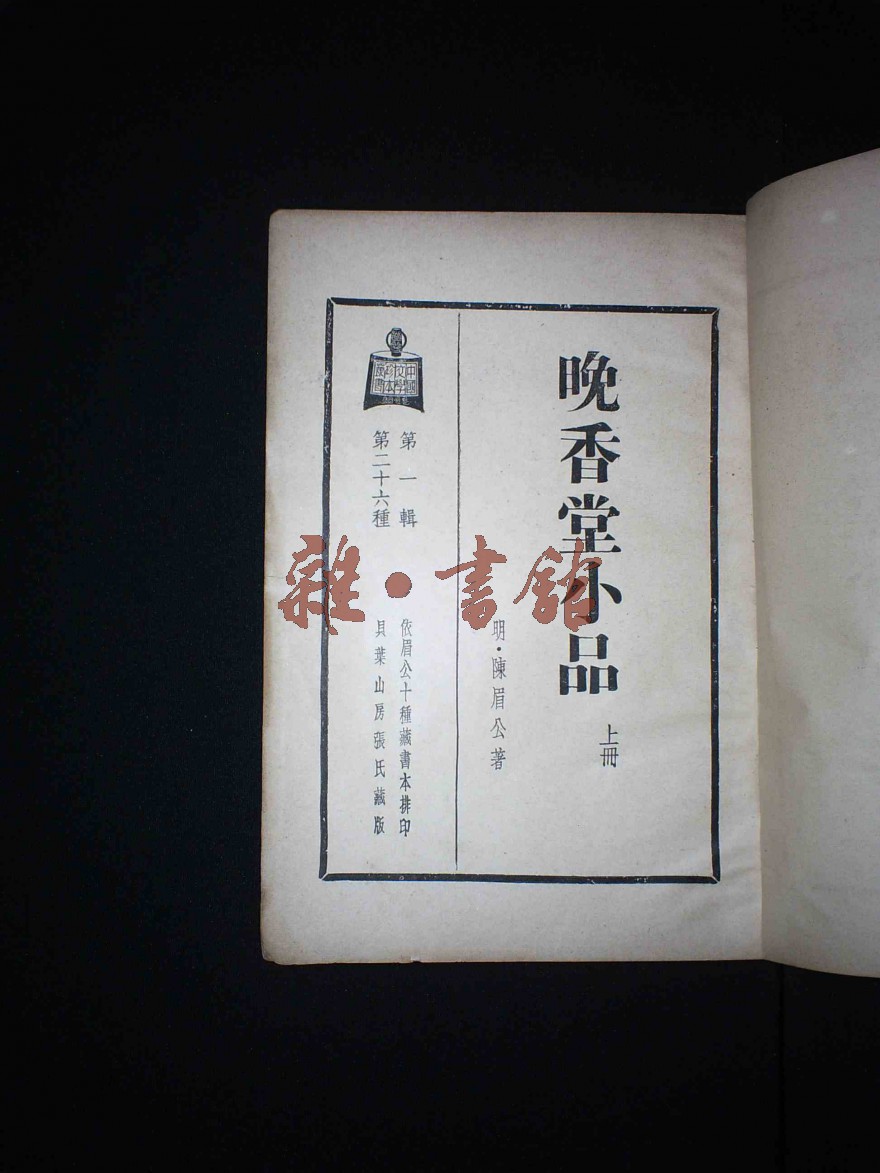 晚香堂小品
上冊
明·陳眉公著
中國
文學
珍本
叢書
第一輯
第二十六種
依眉公十種藏書本排印
貝葉山房張氏藏版
雜·書館